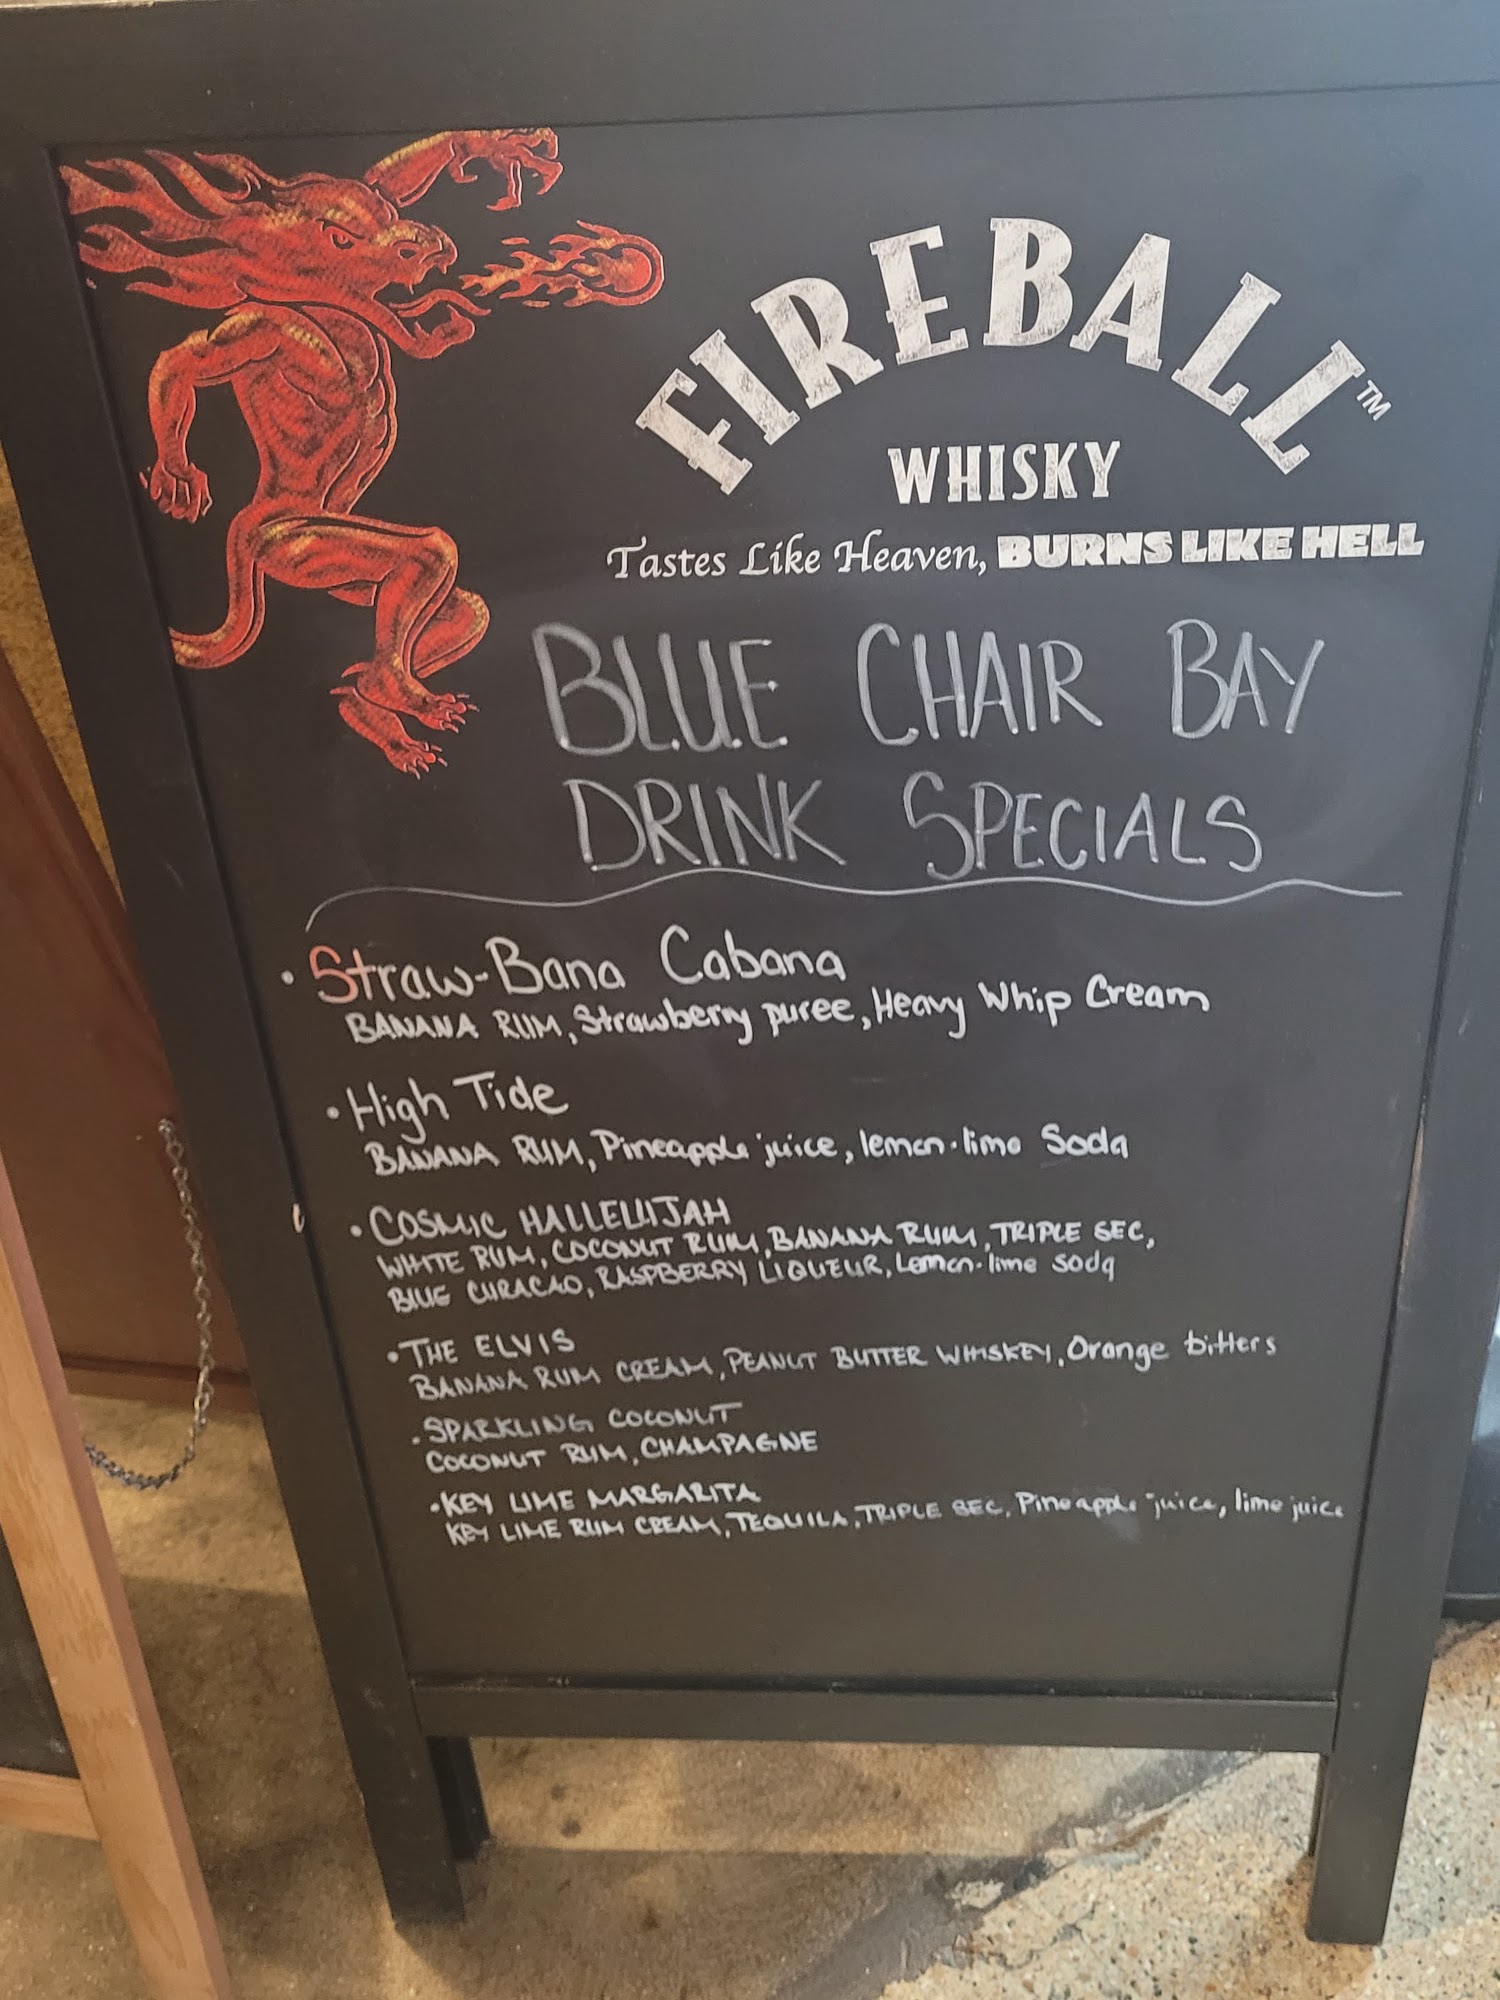 FIREBALL™
WHISKY
Tastes Like Heaven, BURNS LIKE HELL
BLUE CHAIR BAY
DRINK SPECIALS
• Straw-Bana Cabana
BANANA RUM, Strawberry puree, Heavy Whip Cream
• High Tide
BANANA RUM, Pineapple juice, lemon-lime Soda
• COSMIC HALLELUJAH
WHITE RUM, COCONUT RUM, BANANA RUM, TRIPLE SEC,
BLUE CURACAO, RASPBERRY LIQUEUR, Lemon-lime soda
• THE ELVIS
BANANA RUM CREAM, PEANUT BUTTER WHISKEY, Orange bitters
• SPARKLING COCONUT
COCONUT RUM, CHAMPAGNE
• KEY LIME MARGARITA
KEY LIME RUM CREAM, TEQUILA, TRIPLE SEC, Pineapple juice, lime juice